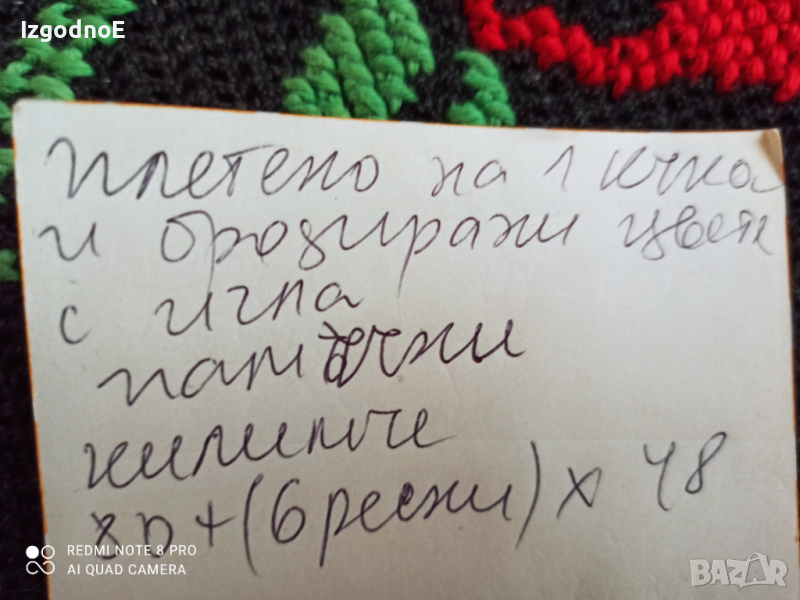 IzgodnoE
плетено на 1 кука
и бродирани цветя
с игла
памучни
килимче
80+(6 ресни) x 48
REDMI NOTE 8 PRO
AI QUAD CAMERA
BAZAR